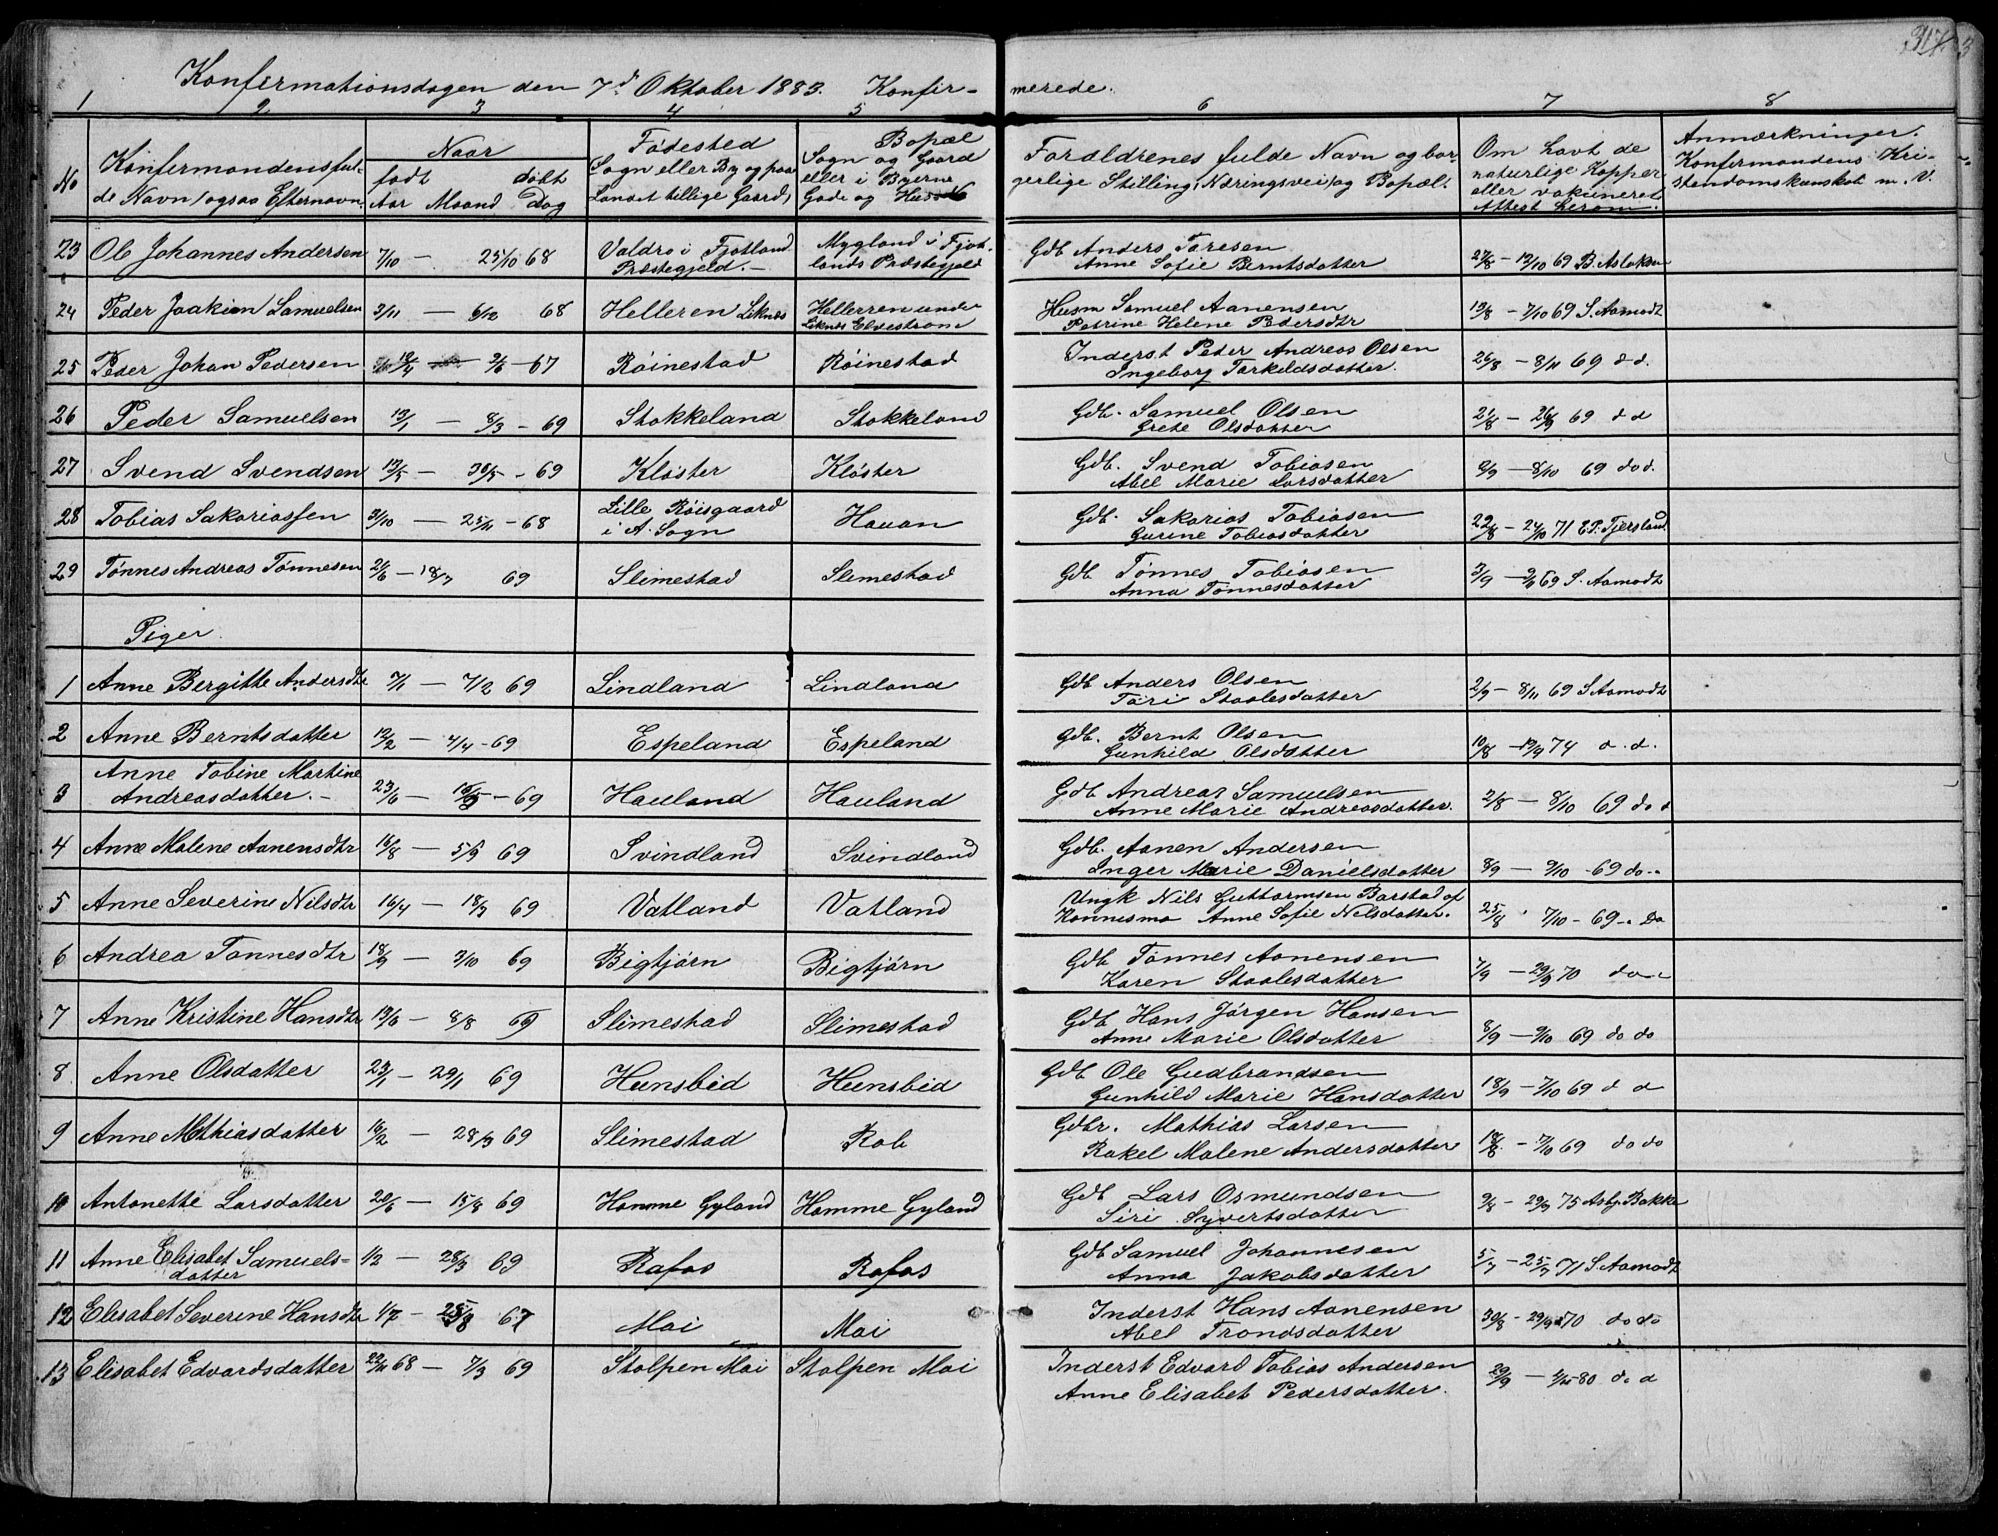 317.
Konfirmationsdagen den 7d Oktober 1883. Konfirmerede.
1 2 3 4 5 6 7 8
No | Konfirmandens fulde Navn (ogsaa Efternavn | Naar født døbt Aar Maaned Dag | Fødested Sogn eller By og paa Landet tillige Gaard, | Bopæl Sogn og Gaard eller i Byerne Gade og | Forældrenes fulde Navn og borgerlige Stilling, (Næringsvei) og Bopæl. | Om havt de naturlige Kopper eller vakcineret Attest herom. | Anmærkninger. Konfirmandens Kristendomskundskab m. V.
23 Ole Johannes Andersen 7/10 — 25/10 68 Valdro i Fjotland Præstegjeld. — Mygland i Fjotlands Præstegjeld Gdb Anders Taresen Anne Sofie Berntsdatter 27/8 — 12/10 69 B. Aslaksen
24 Peder Joakim Samuelsen 3/11 — 6/12 68 Helleren Liknes Helleren under Liknes Elvestrøm Husm Samuel Aanensen Petrine Helene Pedersdtr 13/8 — 7/10 69 S. Aamodt
25 Peder Johan Pedersen — 67 Røinestad Røinestad Inderst Peder Andreas Olsen Ingeborg Tarkildsdatter. 26/8 — 8/11 69 d d.
26 Peder Samuelsen 13/1 — 8/3 — 69 Stokkeland Stokkeland Gdb. Samuel Olsen Grete Olsdatter 21/8 — 26/9 69 d d
27 Svend Svendsen 13/5 — 30/5 — 69 Kloster Kloster Gdb. Svend Tobiasen Abel Marie Larsdatter 2/9 — 8/10 69 do d.
28 Tobias Sakariassen 3/10 — 25/11 — 68 Lille Røisgaard i A. Sogn Hauan Gdb. Sakarias Tobiasen Gurine Tobiasdatter 22/8 — 24/10 71 E.P. Tjersland
29 Tønnes Andreas Tønnesen 21/6 — 18/7 69 Slimestad Slimestad Gdb Tønnes Tobiasen Anna Tønnesdatter 3/9 — 69 S. Aamodt
Piger.
1 Anne Bergitte Andersdtr 7/1 — 7/2 69 Lindland Lindland Gdb Anders Olsen Tøri Staalesdatter 2/9 — 8/11 69 S Aamodt
2 Anne Berntsdatter 12/2 — 4/4 — 69 Espeland Espeland Gdb. Bernt Olsen Gunhild Olsdatter 10/8 — 19/9 74 d. d.
3 Anne Tobine Martine Andreasdatter. — 23/6 — 69 Hauland Hauland Gdb Andreas Samuelsen Anne Marie Andreasdatter. 2/8 — 8/10 69 do d
4 Anne Malene Aanensdtr 16/8 — 5/9 69 Svindland Svindland Gdb. Aanen Andersen Inger Marie Danielsdatter 8/9 — 9/10 — 69 do —
5 Anne Severine Nilsdtr 16/4 — 18/7 69 Vatland Vatland Ungk Nils Guttormsen Barstad af Konnesmo Anne Sofie Nilsdatter. 25/8 7/10 — 69 — Do
6 Andrea Tønnesdtr 18/9 — 3/10 69 Bigtjørn Bigtjørn Gdb Tønnes Aanensen Karen Staalesdatter 7/9 — 29/9 70 do —
7 Anne Kristine Hansdtr 19/6 — 8/8 69 Slimestad Slimestad Gdb Hans Jørgen Hansen Anne Marie Olsdatter 8/9 — 9/10 69 do do
8 Anne Olsdatter 23/1 — 29/1 69 Hunsbed Hunsbed Gdb Ole Gudbrandsen Gunhild Marie Hansdatter 18/9 — 7/10 69 d d
9 Anne Mathiasdatter 16/2 — 28/3 69 Slimestad Rob Gdbr. Mathias Larsen Rakel Malene Andersdatter 18/8 — 7/10 69 do do
10 Antonette Larsdatter 20/6 — 15/8 69 Hamme Gyland Hamme Gyland Gdb Lars Osmundsen Siri Syvertsdatter 9/8 — 29/9 75 Asbj. Bakke
11 Anne Elisabet Samuelsdatter 1/2 — 28/3 69 Rafos Rafos Gdb Samuel Johannesen Anna Jakobsdatter 5/7 — 25/7 71 S. Aamodt
12 Elisabet Severine Hansdtr 1/7 — 25/8 67 Moi Moi Inderst Hans Aanensen Abel Trondsdatter 30/8 — 29/9 70 do do
13 Elisabet Edvardsdatter 22/11 68 — 7/3 69 Stolpen Moi Stolpen Moi Inderst Edvard Tobias Andersen Anne Elisabet Pedersdatter. 29/9 — 80 do d